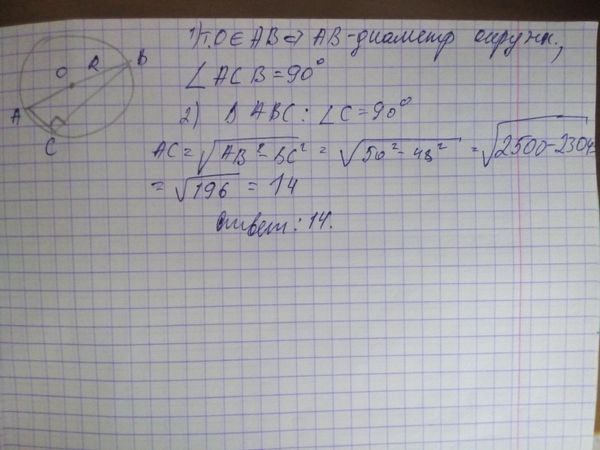 1) т. O ∈ AB ⇒ AB - диаметр окружн.,
∠ACB = 90°
2) Δ ABC : ∠C = 90°
AC = √AB² - BC² = √50² - 48² = √2500 - 2304 =
= √196 = 14
Ответ: 14.
O R B
A
C